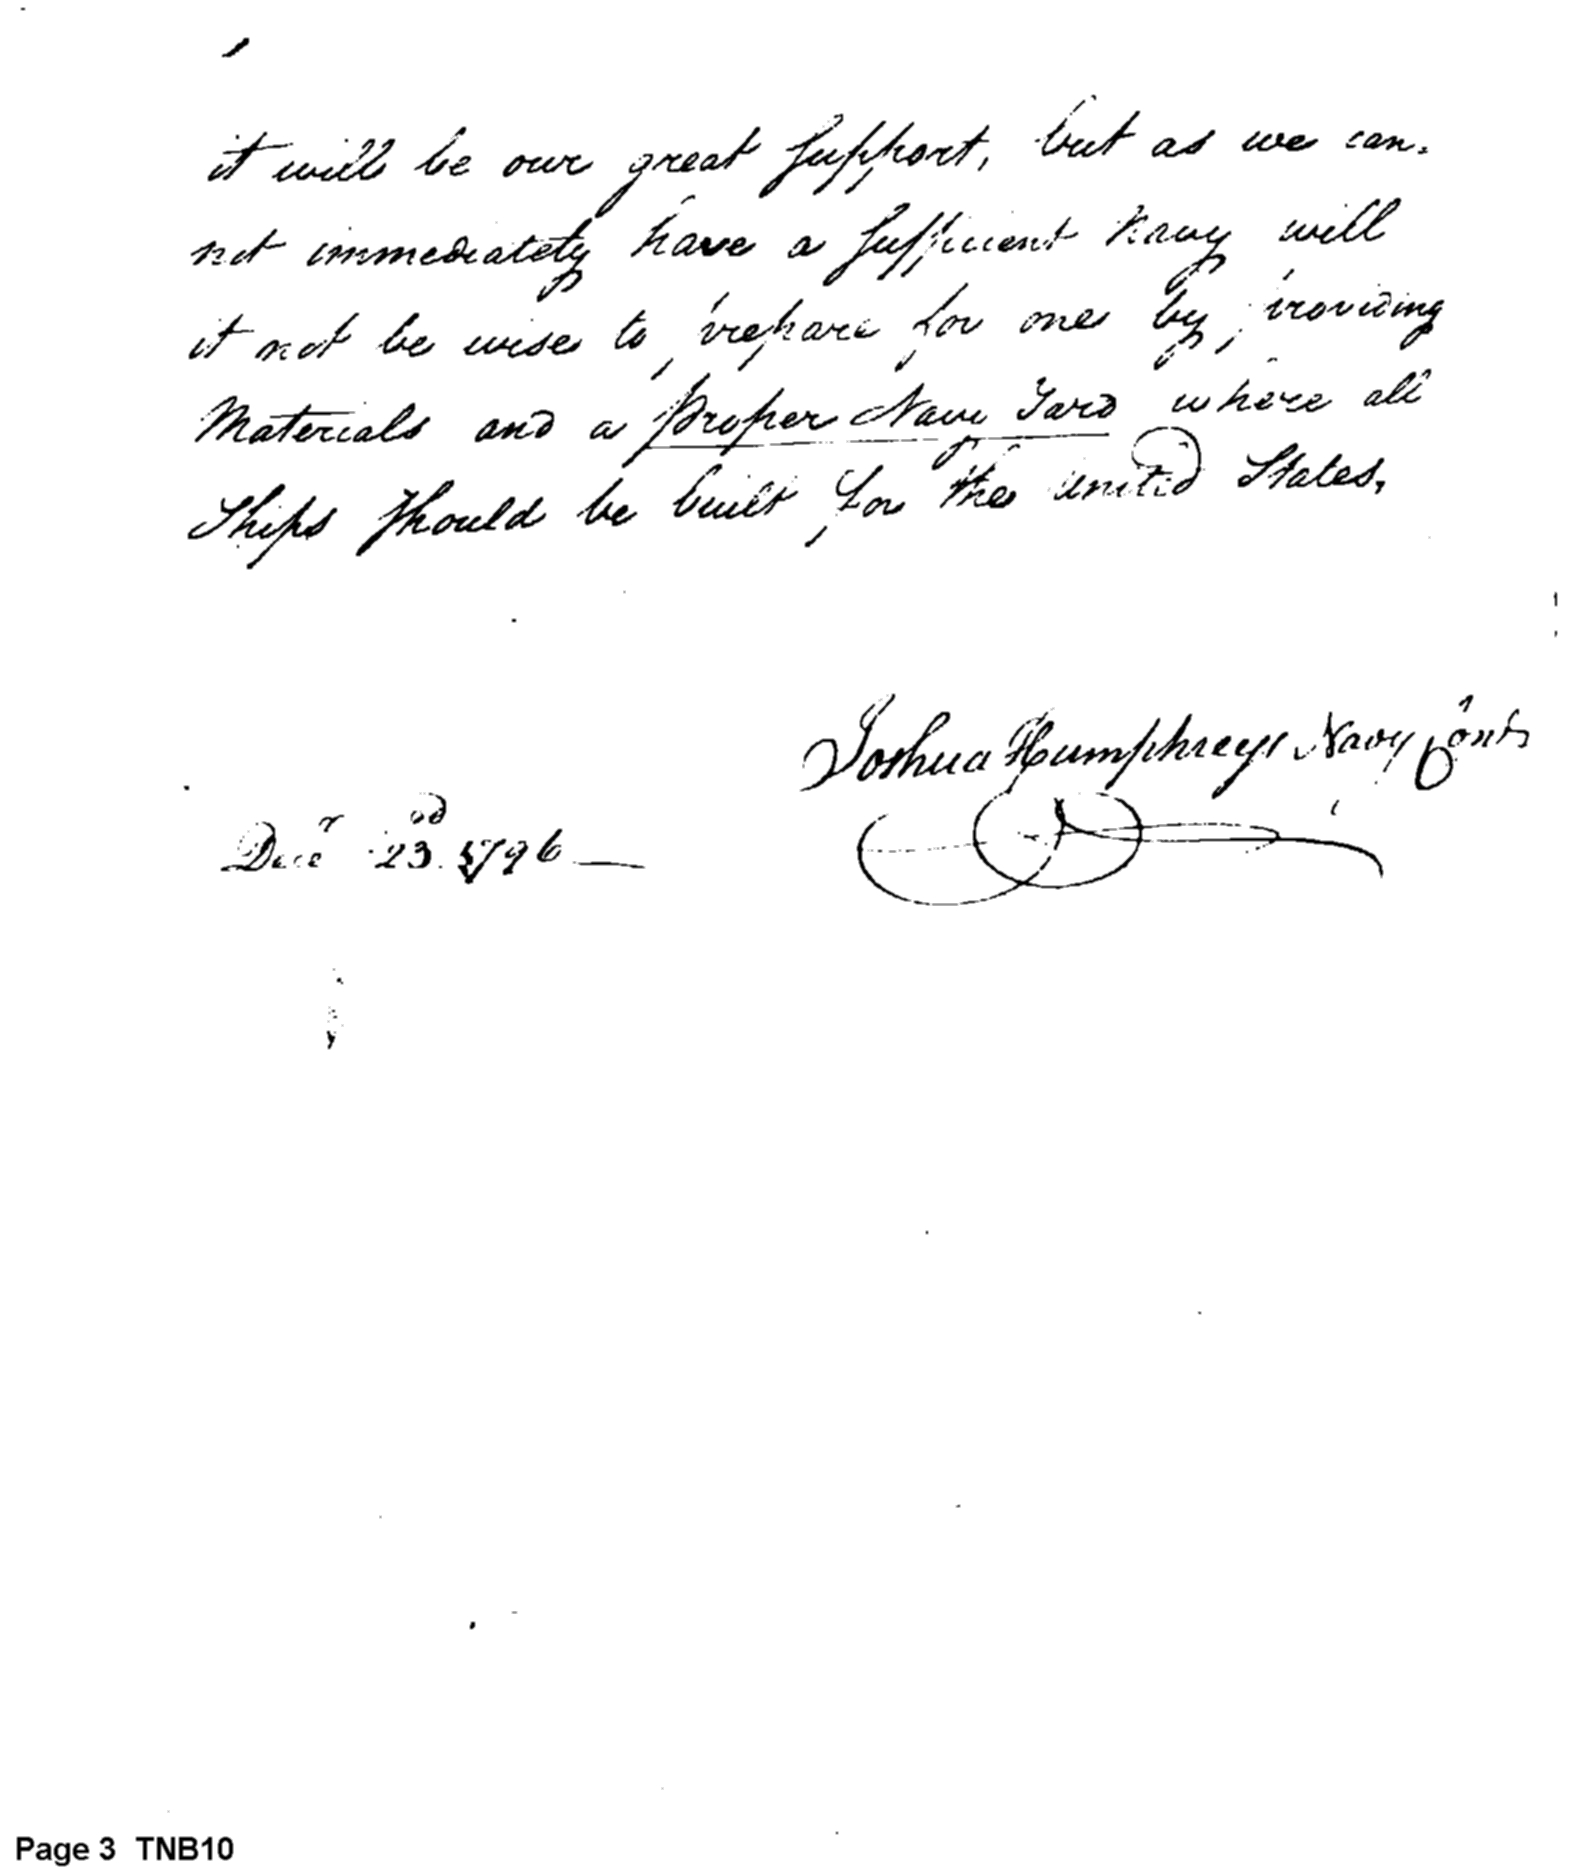 it will be our great support, but as we can-
not immediately have a sufficient Navy will
it not be wise to prepare for one by providing
Materials and a proper Navy Yard where all
Ships should be built for the united States,
Joshua Humphreys Navy Const
Decr 23rd 1796
Page 3 TNB10